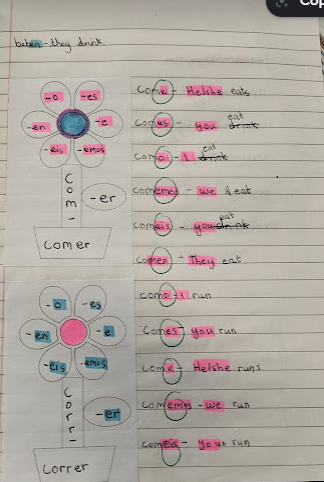 beben - they drink.
-o
-es
-en
-e
-eis
-emos
com-
-er
Comer
Come - He/she eats
Comes - you eat drink
Como - I eat drink
Comemos - we eat
Comeis - you eat drink
Comen - They eat
-o
-es
-en
-e
-eis
-emos
Corr-
-er
Correr
Como - I run
Comes - you run
Come - He/she runs
Comemos - we run
Comeis - you run